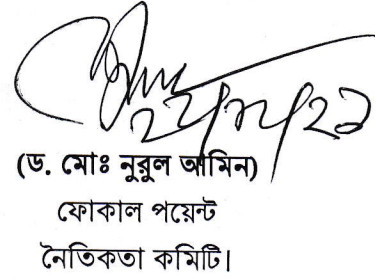 (ড. মোঃ নুরুল আমিন)
ফোকাল পয়েন্ট
নৈতিকতা কমিটি।